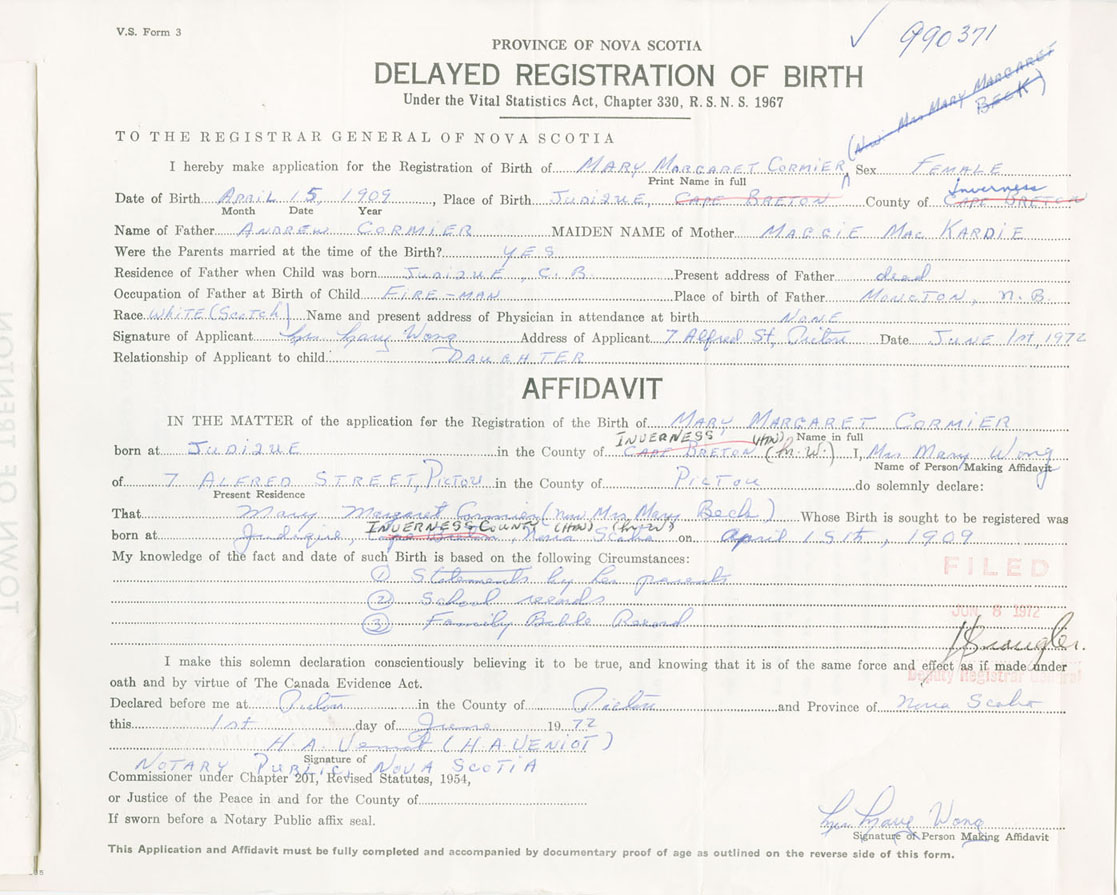 V.S. Form 3
990371
PROVINCE OF NOVA SCOTIA
DELAYED REGISTRATION OF BIRTH
Under the Vital Statistics Act, Chapter 330, R.S.N.S. 1967
(Now Mrs MARY MARGARET BECK)
TO THE REGISTRAR GENERAL OF NOVA SCOTIA
I hereby make application for the Registration of Birth of MARY MARGARET CORMIER Sex FEMALE
Print Name in full
Inverness
Date of Birth APRIL 15, 1909, Place of Birth JUDIQUE, CAPE BRETON County of CAPE BRETON
Month Date Year
Name of Father ANDREW CORMIER MAIDEN NAME of Mother MAGGIE MAC KARDIE
Were the Parents married at the time of the Birth? YES
Residence of Father when Child was born JUDIQUE, C.B. Present address of Father dead
Occupation of Father at Birth of Child FIRE-MAN Place of birth of Father MONCTON, N.B.
Race WHITE (Scotch) Name and present address of Physician in attendance at birth NONE
Signature of Applicant Mrs Mary Wong Address of Applicant 7 Alfred St, Pictou Date JUNE 1st, 1972
Relationship of Applicant to child DAUGHTER
AFFIDAVIT
IN THE MATTER of the application for the Registration of the Birth of MARY MARGARET CORMIER
Name in full
INVERNESS
born at JUDIQUE in the County of CAPE BRETON (M.W.) I, Mrs Mary Wong
Name of Person Making Affidavit
of 7 ALFRED STREET, PICTOU in the County of PICTOU do solemnly declare:
Present Residence
That Mary Margaret Cormier (now Mrs Mary Beck) Whose Birth is sought to be registered was
INVERNESS COUNTY
born at Judique, Cape Breton, Nova Scotia on April 15th, 1909
My knowledge of the fact and date of such Birth is based on the following Circumstances:
① Statements by her parents
② School records
③ Family Bible Record
FILED
JUN 6 1972
Deputy Registrar General
I make this solemn declaration conscientiously believing it to be true, and knowing that it is of the same force and effect as if made under
oath and by virtue of The Canada Evidence Act.
Declared before me at Pictou in the County of Pictou and Province of Nova Scotia
this 1st day of June 1972
H. A. Veniot (H A VENIOT)
Signature of
NOTARY PUBLIC, NOVA SCOTIA
Commissioner under Chapter 201, Revised Statutes, 1954,
or Justice of the Peace in and for the County of
If sworn before a Notary Public affix seal.
Mrs Mary Wong
Signature of Person Making Affidavit
This Application and Affidavit must be fully completed and accompanied by documentary proof of age as outlined on the reverse side of this form.
TOWN OF TRENTON